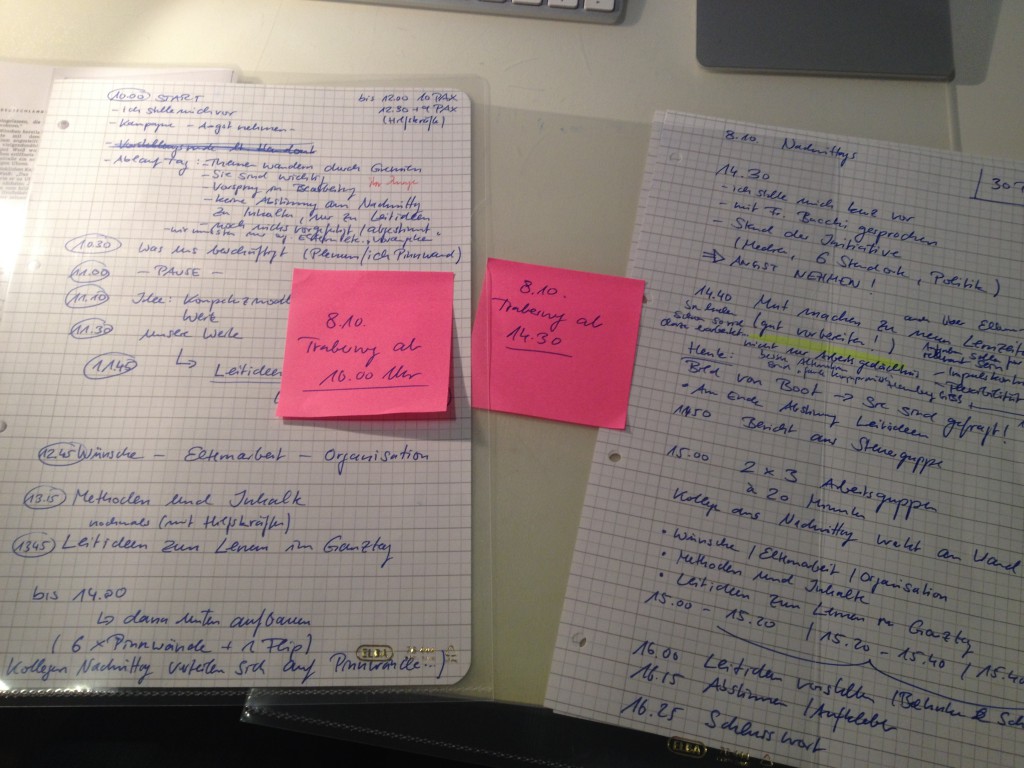 10.00 START
bis 12.00 10 PAX
12.30 + 4 PAX
(Hilfskräfte)
- ich stelle mich vor
- Kampagne - Angst nehmen -
- Ablauf Tag: - Themen wandern durch Gremien
- Sie sind wichtig
- Vorsprung in Bearbeitung
- keine Abstimmung am Nachmittag
zu Inhalten, nur zu Leitideen
- noch nichts vorgeführt / abgestimmt -
10.30 Was uns beschäftigt (Plenum/ich Pinnwand)
11.00 - PAUSE -
11.10 Idee: Kompetenzmodell
Werte
11.30 unsere Werte
11.45 ↳ Leitideen
12.45 Wünsche - Elternarbeit - Organisation
13.15 Methoden und Inhalte
nochmals (mit Hilfskräften)
13.45 Leitideen zum Lernen im Ganztag
bis 14.00
↳ dann unten aufbauen
(6 x Pinnwände + 1 Flip)
Kollegen Nachmittag verteilen sich auf Pinnwände!)
ELBA
8.10.
ab
16.00 Uhr
8.10.
ab
14.30
8.10. Nachmittags
30
14.30
- ich stelle mich kurz vor
- mit Fr. Bucchi gesprochen
- Stand der Initiative
(Medien, 6 Standorte, Politik)
⇒ ANGST NEHMEN!
14.40 Mut machen zu neuen Lernzeiten
(gut vorbereiten!)
nicht nur Arbeit gedacht
- Flexibilität
Heute:
Bild von Boot → Sie sind gefragt!
• Am Ende Abstimmung Leitideen
14.50 Bericht aus Steuergruppe
15.00 2 x 3 Arbeitsgruppen
à 20 Minuten
Kollegen aus Nachmittag an Wand
• Wünsche / Elternarbeit / Organisation
• Methoden und Inhalte
• Leitideen zum Lernen im Ganztag
15.00 - 15.20 / 15.20 - 15.40 / 15.40
16.00 Leitideen vorstellen
16.15 Abstimmen / Aufkleber
16.25 Schlusswort
ELBA